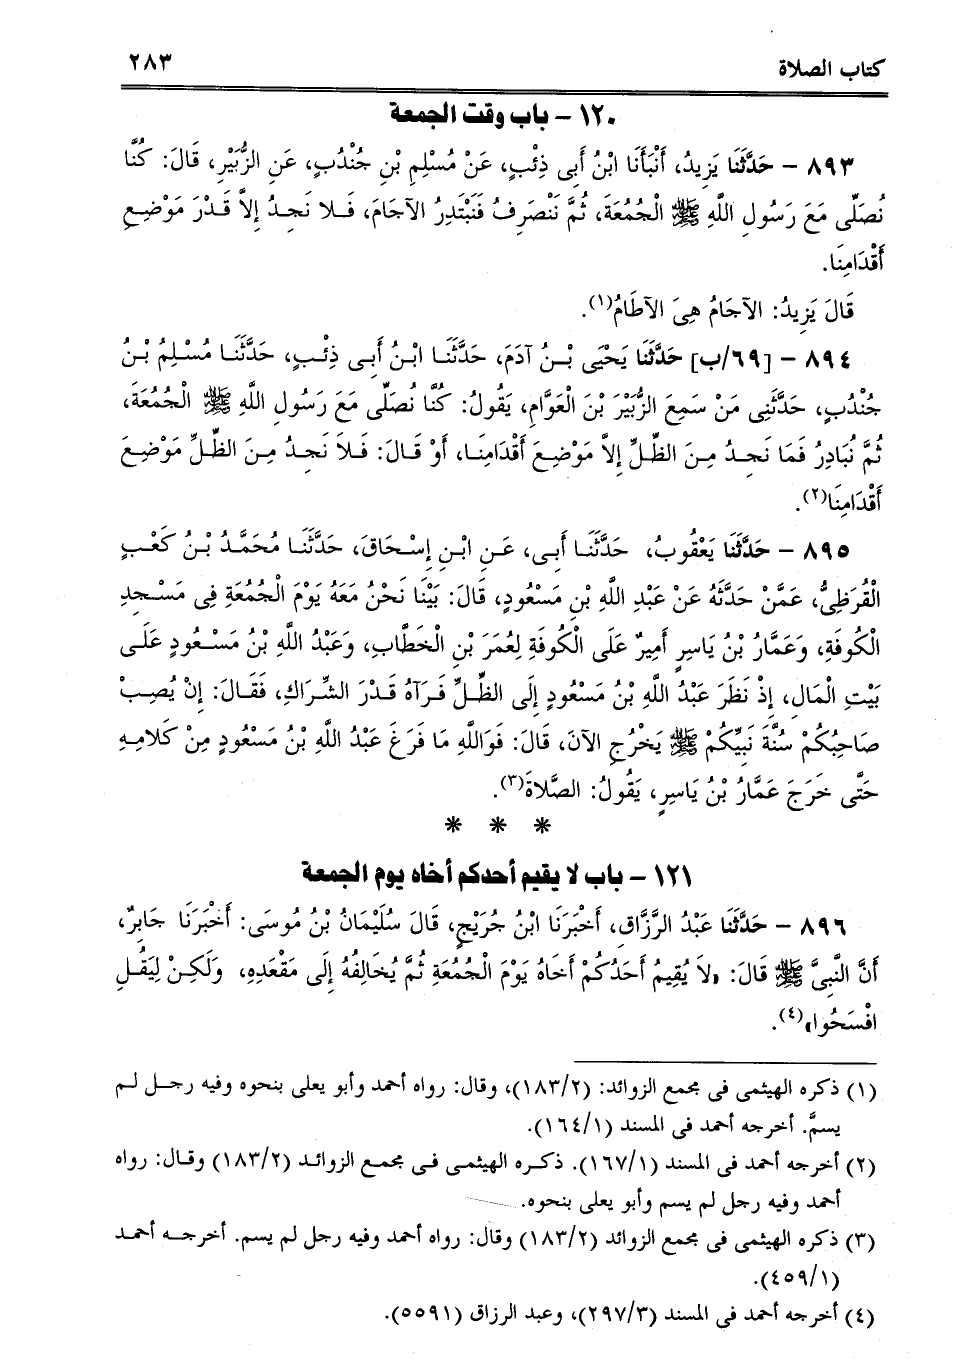 كتاب الصلاة ٢٨٣
١٢٠ - باب وقت الجمعة
٨٩٣ - حَدَّثَنَا يَزِيدُ، أَنْبَأَنَا ابْنُ أَبِى ذِئْبٍ، عَنْ مُسْلِمِ بْنِ جُنْدُبٍ، عَنِ الزُّبَيْرِ، قَالَ: كُنَّا
نُصَلِّى مَعَ رَسُولِ اللَّهِ ﷺ الْجُمُعَةَ، ثُمَّ نَنْصَرِفُ فَنَبْتَدِرُ الآجَامَ، فَلا نَجِدُ إِلاَّ قَدْرَ مَوْضِعِ
أَقْدَامِنَا.
قَالَ يَزِيدُ: الآجَامُ هِىَ الآطَامُ(١).
٨٩٤ - [٦٩/ب] حَدَّثَنَا يَحْيَى بْنُ آدَمَ، حَدَّثَنَا ابْنُ أَبِى ذِئْبٍ، حَدَّثَنَا مُسْلِمُ بْنُ
جُنْدُبٍ، حَدَّثَنِى مَنْ سَمِعَ الزُّبَيْرَ بْنَ الْعَوَّامِ، يَقُولُ: كُنَّا نُصَلِّى مَعَ رَسُولِ اللَّهِ ﷺ الْجُمُعَةَ،
ثُمَّ نُبَادِرُ فَمَا نَجِدُ مِنَ الظِّلِّ إِلاَّ مَوْضِعَ أَقْدَامِنَا، أَوْ قَالَ: فَلاَ نَجِدُ مِنَ الظِّلِّ مَوْضِعَ
أَقْدَامِنَا(٢).
٨٩٥ - حَدَّثَنَا يَعْقُوبُ، حَدَّثَنَا أَبِى، عَنِ ابْنِ إِسْحَاقَ، حَدَّثَنَا مُحَمَّدُ بْنُ كَعْبٍ
الْقُرَظِىُّ، عَمَّنْ حَدَّثَهُ عَنْ عَبْدِ اللَّهِ بْنِ مَسْعُودٍ، قَالَ: بَيْنَا نَحْنُ مَعَهُ يَوْمَ الْجُمُعَةِ فِى مَسْجِدِ
الْكُوفَةِ، وَعَمَّارُ بْنُ يَاسِرٍ أَمِيرٌ عَلَى الْكُوفَةِ لِعُمَرَ بْنِ الْخَطَّابِ، وَعَبْدُ اللَّهِ بْنُ مَسْعُودٍ عَلَى
بَيْتِ الْمَالِ، إِذْ نَظَرَ عَبْدُ اللَّهِ بْنُ مَسْعُودٍ إِلَى الظِّلِّ فَرَآهُ قَدْرَ الشِّرَاكِ، فَقَالَ: إِنْ يُصِبْ
صَاحِبُكُمْ سُنَّةَ نَبِيِّكُمْ ﷺ يَخْرُجِ الآنَ، قَالَ: فَوَاللَّهِ مَا فَرَغَ عَبْدُ اللَّهِ بْنُ مَسْعُودٍ مِنْ كَلامِهِ
حَتَّى خَرَجَ عَمَّارُ بْنُ يَاسِرٍ، يَقُولُ: الصَّلاةَ(٣).
* * *
١٢١ - باب لا يقيم أحدكم أخاه يوم الجمعة
٨٩٦ - حَدَّثَنَا عَبْدُ الرَّزَّاقِ، أَخْبَرَنَا ابْنُ جُرَيْجٍ، قَالَ سُلَيْمَانُ بْنُ مُوسَى: أَخْبَرَنَا جَابِرٌ،
أَنَّ النَّبِىَّ ﷺ قَالَ: «لاَ يُقِيمُ أَحَدُكُمْ أَخَاهُ يَوْمَ الْجُمُعَةِ ثُمَّ يُخَالِفُهُ إِلَى مَقْعَدِهِ، وَلَكِنْ لِيَقُلِ
افْسَحُوا»(٤).
(١) ذكره الهيثمى فى مجمع الزوائد: (١٨٣/٢)، وقال: رواه أحمد وأبو يعلى بنحوه وفيه رجل لم
يسمَّ. أخرجه أحمد فى المسند (١٦٤/١).
(٢) أخرجه أحمد فى المسند (١٦٧/١). ذكره الهيثمى فى مجمع الزوائد (١٨٣/٢) وقال: رواه
أحمد وفيه رجل لم يسم وأبو يعلى بنحوه.
(٣) ذكره الهيثمى فى مجمع الزوائد (١٨٣/٢) وقال: رواه أحمد وفيه رجل لم يسم. أخرجه أحمد
(٤٥٩/١).
(٤) أخرجه أحمد فى المسند (٢٩٧/٣)، وعبد الرزاق (٥٥٩١).